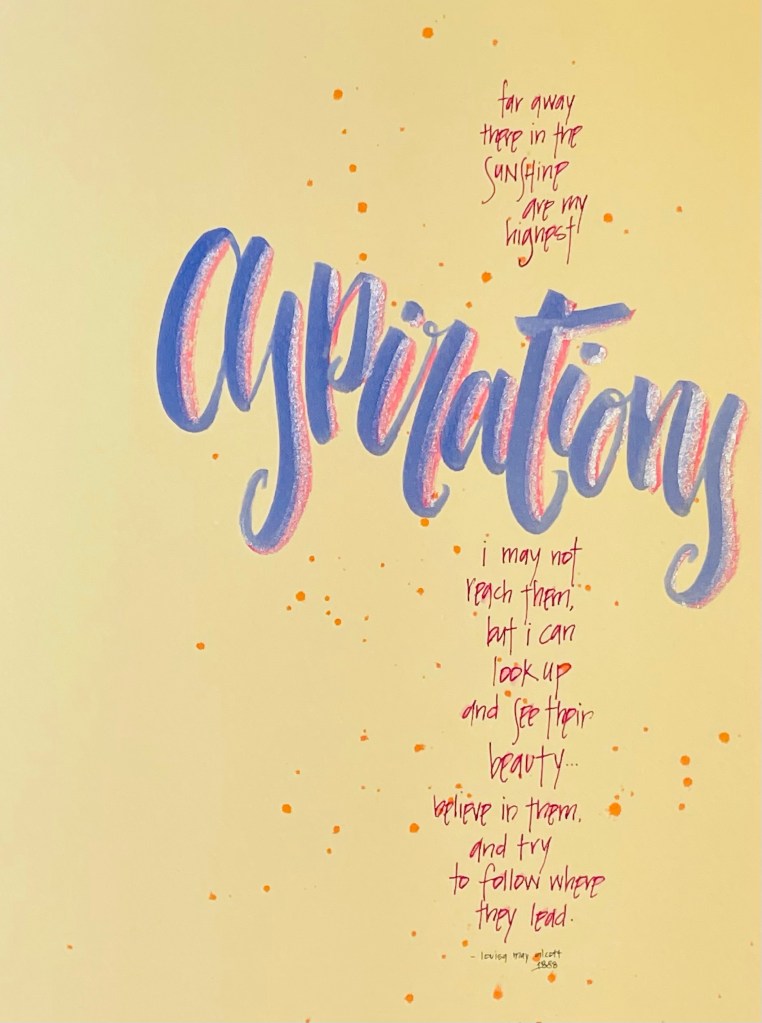 far away
there in the
SUNSHine
are my
highest
aspirations
i may not
reach them,
but i can
look up
and SEE their
beauty...
believe in them,
and try
to follow where
they lead.
- louisa may alcott
1888